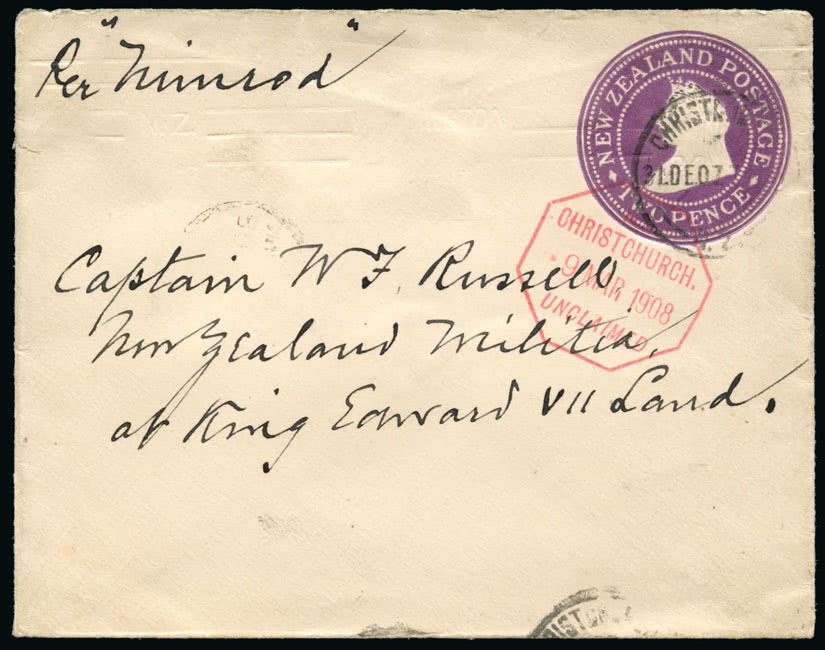 Per "Nimrod"
NEW ZEALAND POSTAGE
TWO PENCE
CHRISTCH
31 DE 07
CHRISTCHURCH.
9 MAR 1908
UNCLAIMED
Captain W F. Russell,
New Zealand Militia,
at King Edward VII Land.